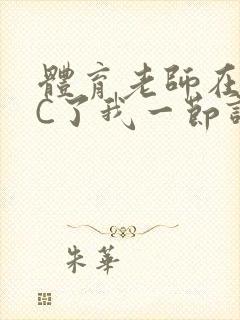 體育老師在
C了我一節
朱華